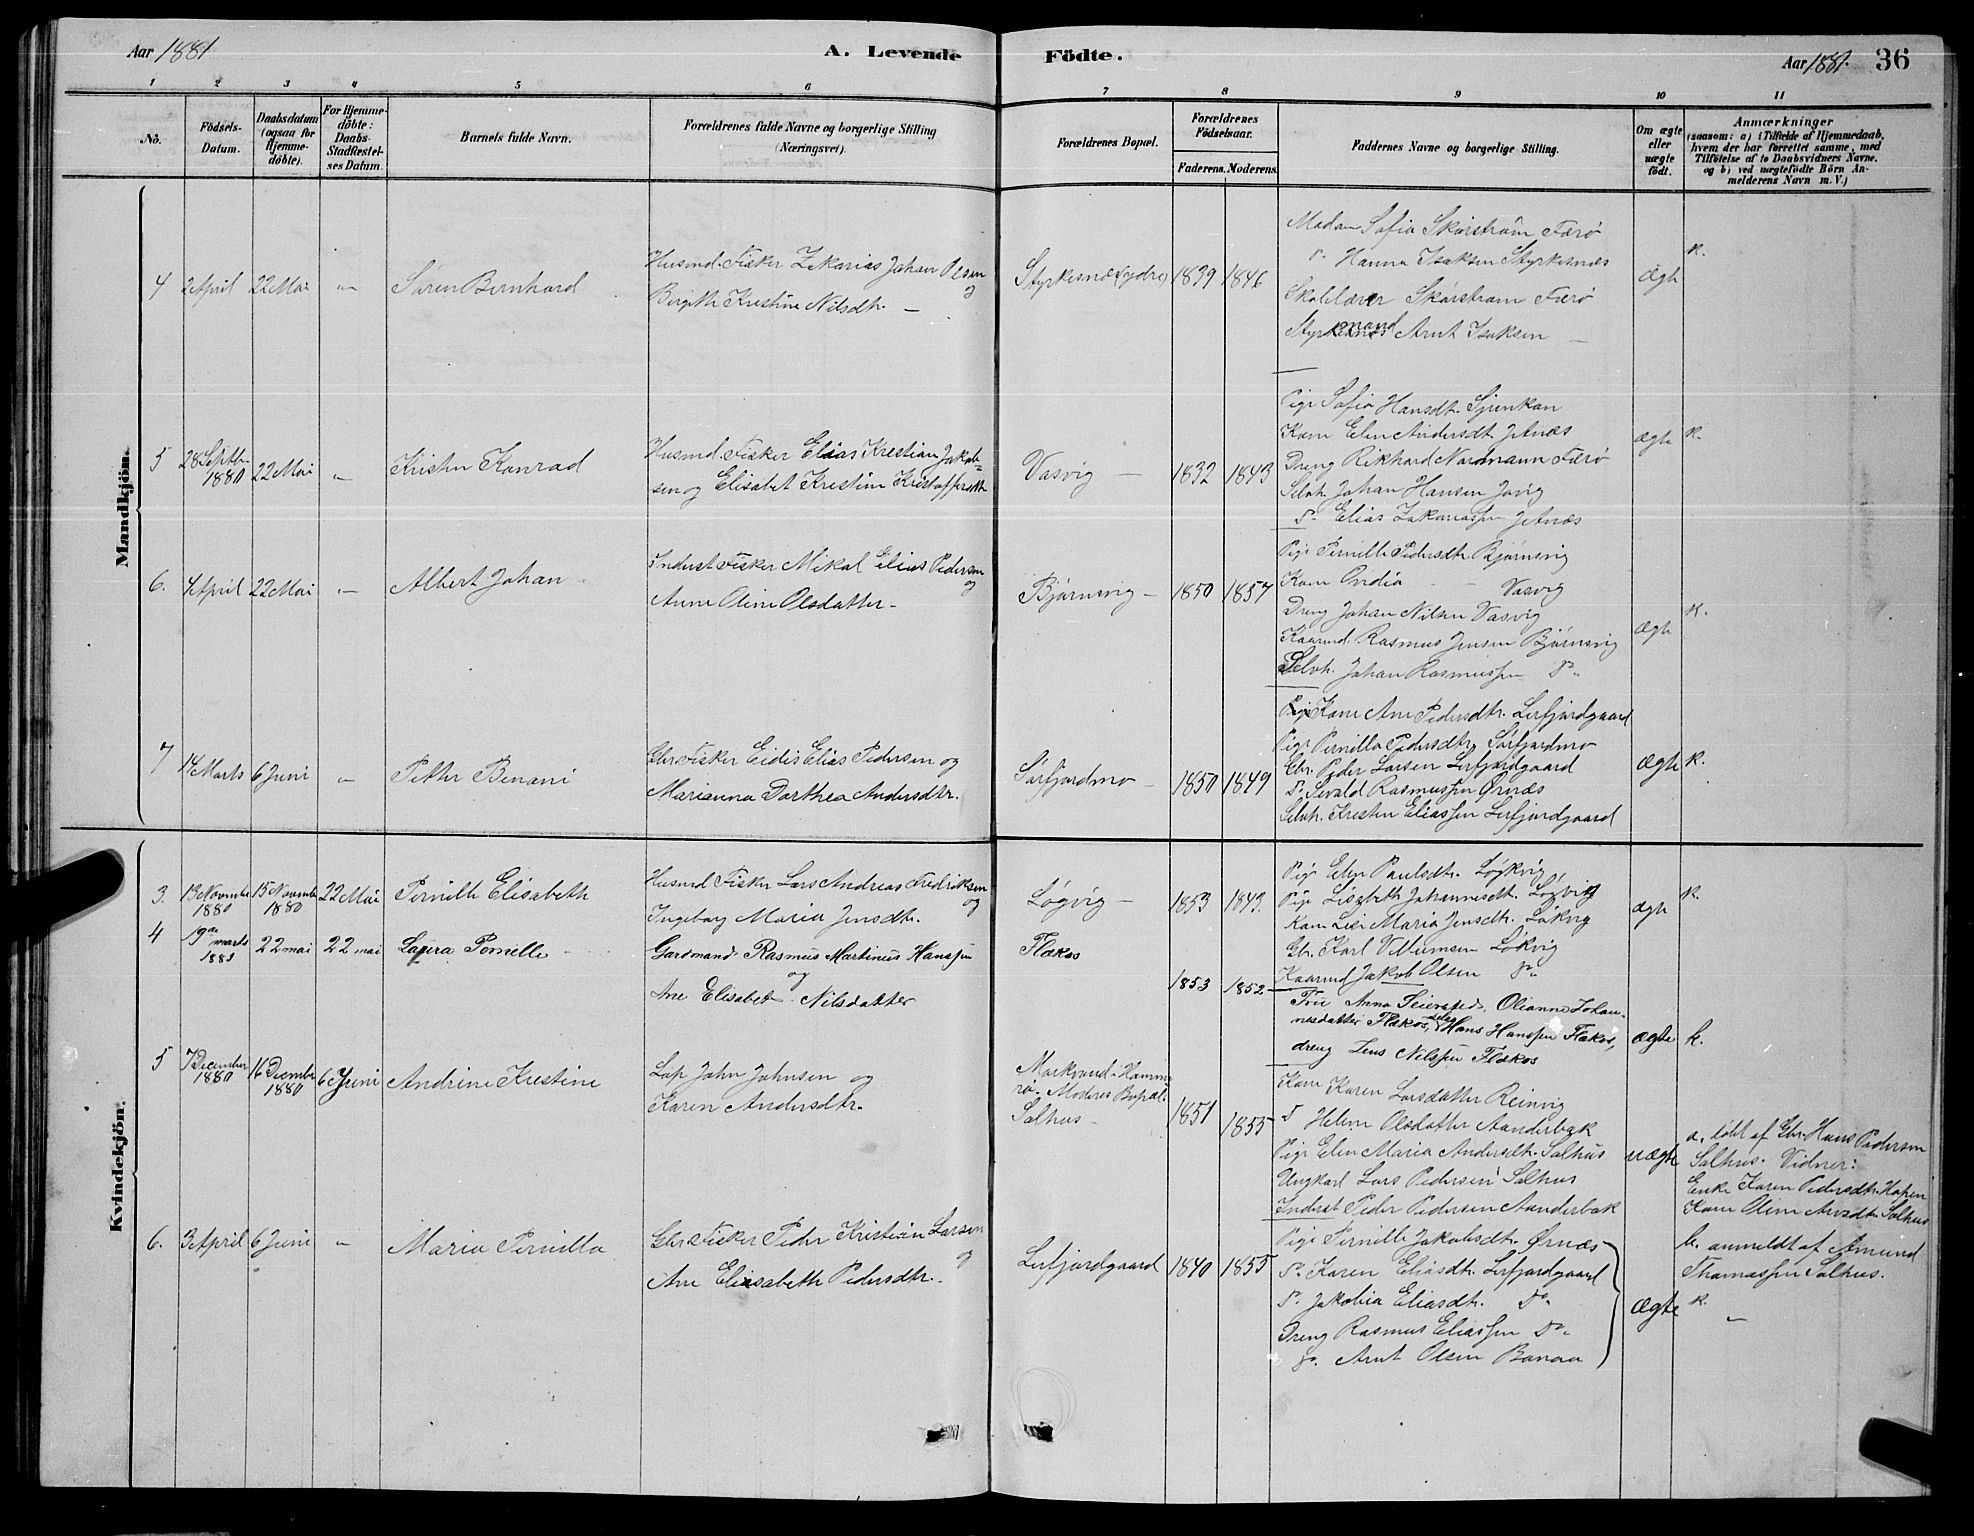 Aar 1881
A. Levende
Födte.
Aar 1881.
36
1 2 3 4 5 6 7 8 9 10 11
No.
Födsels-Datum.
Daabsdatum (ogsaa for Hjemme-döbte).
For Hjemme-döbte: Daabs-Stadfæstel-ses Datum.
Barnets fulde Navn.
Forældrenes fulde Navne og borgerlige Stilling
(Næringsvei).
Forældrenes Bopæl.
Forældrenes Födselsaar.
Faderens. Moderens.
Faddernes Navne og borgerlige Stilling.
Om ægte eller uægte födt.
Anmærkninger
(saasom: a) i Tilfælde af Hjemmedaab,
hvem der har forrettet samme, med
Tilföielse af to Daabsvidners Navne.
og b) ved uægtefödte Börn An-
melderens Navn m. V.)
Mandkjön.
4 2 April 22 Mai " Søren Bernhard
Husmd. Fisker Zakarias Johan Olsen
og
Birgithe Kristine Nilsdtr. —
Styrkesnæs (ydre) 1839 1846
Madam Sofia Skårstrøm Færø
do Hanna Isaksen Styrkesnæs
Skolelærer Skårstrøm Færø
Styrkesnæs Arnt Isaksen —
Ægte k.
5 28 Septbr 1880 22 Mai " Kristen Konrad
Husmd. Fisker Elias Krestian Jakob-
sen og Elisabet Kristine Kristoffersdtr
Vasvig — 1832 1843
Pige Sofia Hansdtr.
Kone Elen Andersdt.
Dreng Rikhard Nordmann Færø
Selvh. Johan Hansen
do Elias Zakariassen
ægte k.
6. 4 April 22 Mai " Albert Johan
Inderst Fisker Mikal Elias Pedersen
og
Anne Oline Olsdatter —
Bjørnsvig — 1850 1857
Pige Pernille Pedersdtr. Bjørnsvig
Kone Ovidia - - Vasvig
Dreng Johan Nilsen Vasvig
Kaarmd. Rasmus Jensen Bjørnsvig
Selvh. Johan Rasmussen do
ægte k.
7 14 Marts 6 Juni " Petter Benoni
Gbr. Fisker Eidis Elias Pedersen og
Marianna Dorthea Andersdtr.
Sørfjordmo — 1850 1849
Kone Ane Pedersdtr. Lerfjordgaard
Pige Pernilla Pedersdtr. Sørfjordmo
Gbr. Peder Larsen Lerfjordgaard
do Sivald Rasmussen Ørnæs
Selvh. Kresten Eliassen Lerfjordgaard
ægte k.
Kvindekjön.
3. 13 Novembr 1880 15 Novembr 1880 22 Mai Pernille Elisabeth
Husmd Fisker Lars Andreas Fredriksen
og
Ingeborg Maria Jensdtr.
Løgvig — 1853 1843.
Pige Elen Paulsdtr. Løgkvig
Pige Lisebeth Johannesdtr. Løgvig
Kone Lise Maria Jensdtr. Løkvig
Gbr. Karl Villumsen Løkvig
Kaarmd Jakob Olsen do
ægte k.
4 19de marts 1881 22 mai 22 mai Laura Pernelle —
Gardmand Rasmus Martinus Hanssen
og
Ane Elisabet Nilsdatter
Flakos 1853 1852
Frue Anna Seiersted, Olianna Johan-
nesdatter Flakos, selvh Hans Hanssen Flakos,
dreng Jens Nilssen Flakos
ægte k.
5 7 December 1880 16 December 1880 6 Juni Andrine Krestine
Lap John Johnsen og
Karen Andersdtr.
Markvand i Hamme-
rø. Moderes Bopæl.
Salhus — 1851 1855
Kone Karen Larsdatter Reinvig
do Helene Olsdatter Aanderbak
Pige Elen Maria Andersdtr. Salhus
Ungkarl Lars Pedersen Salhus
Inderst Peder Pedersen Aanderbak
uægte
a. døbt af Gbr. Hans Pedersen
Salhus. Vidner:
Enke Karen Pedersdtr.
Kone Oline Arnsdtr. Salhus
b. anmeldt af Amund
Thomassen Salhus.
6. 3 April 6 Juni " Maria Pernilla
Gbr. Fisker Peder Kristian Larsen
og
Ane Elisabeth Pedersdtr.
Lerfjordgaard 1840 1855
Pige Pernille Jakobsdtr. Ørnæs
do Karen Eliasdtr. Lerfjordgaard
do Jakobia Eliasdtr. do
Dreng Rasmus Eliassen do
do Arnt Olsen Bonaa
ægte k. "